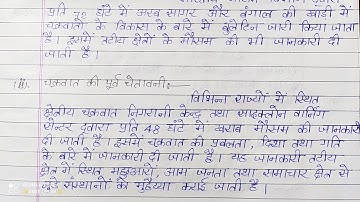 प्रति घंटे में अरब सागर और बंगाल की खाड़ी में
चक्रवातों के विकास के बारे में बुलेटिन जारी किया जाता
है। इसमें तटीय क्षेत्रों के मौसम की भी जानकारी दी
जाती है।
(ii). चक्रवात की पूर्व चेतावनी:
विभिन्न राज्यों में स्थित
क्षेत्रीय चक्रवात निगरानी केन्द्र तथा साइक्लोन वार्निंग
सेन्टर द्वारा प्रति 48 घंटे में खराब मौसम की जानकारी
दी जाती है। इसमें चक्रवात की प्रबलता, दिशा तथा गति
के बारे में जानकारी दी जाती है। यह जानकारी तटीय
क्षेत्र में स्थित मछुआरों, आम जनता तथा समाचार क्षेत्र से
जुड़े संस्थानों को मुहैय्या कराई जाती है।